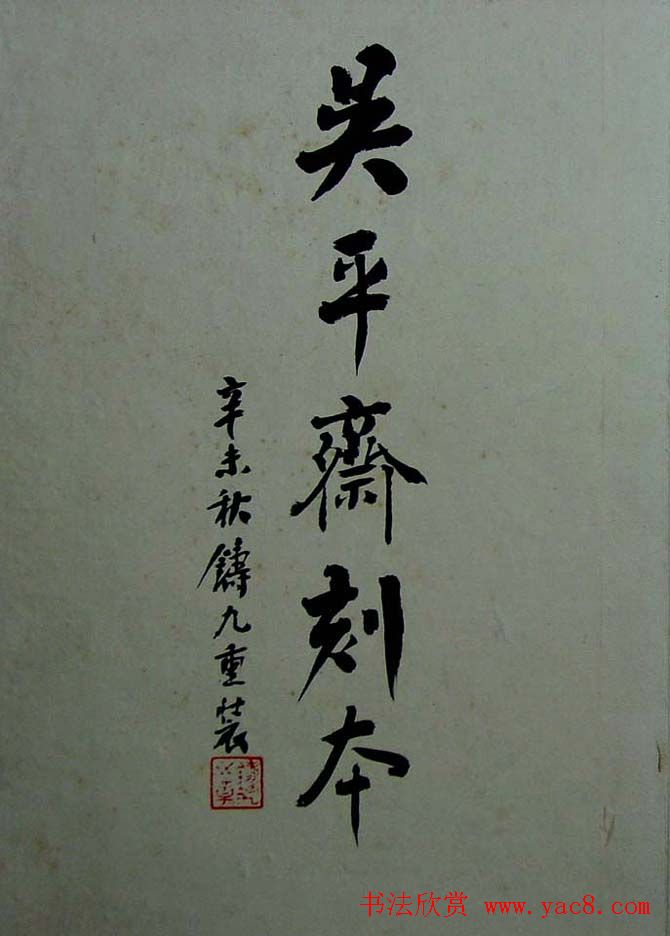 吴平齋刻本
辛未秋鑄九重裝
书法欣赏 www.yac8.com